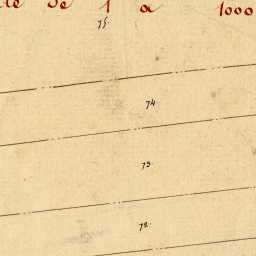 de 1 a 1000
75.
74.
73.
72.